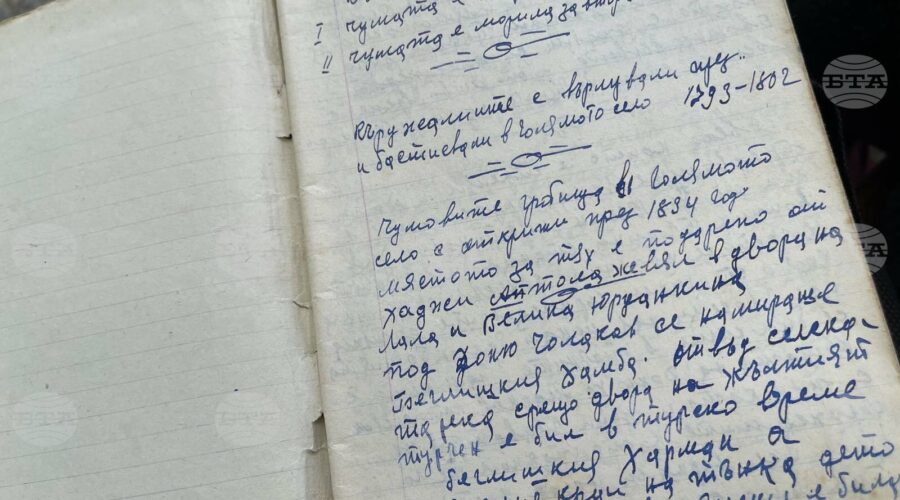 I чумата е
II чумата е морила за втор
кържалиите с върлували през..
и бастисвали в голямото село 1793-1802
Чумовите гробища в голямото
село с открити през 1834 год
мястото за тях е подарено от
хаджи Аптола живял в двора на
Лала и Велика Юрданкина
под Доню Чолаков се намираше
беглишкия хамба. отвъд селска-
та река срещу двора на жълтият
турчен е бил в турско време
беглишкия Харман а
край на тънка дето
е била
БТА
БТА